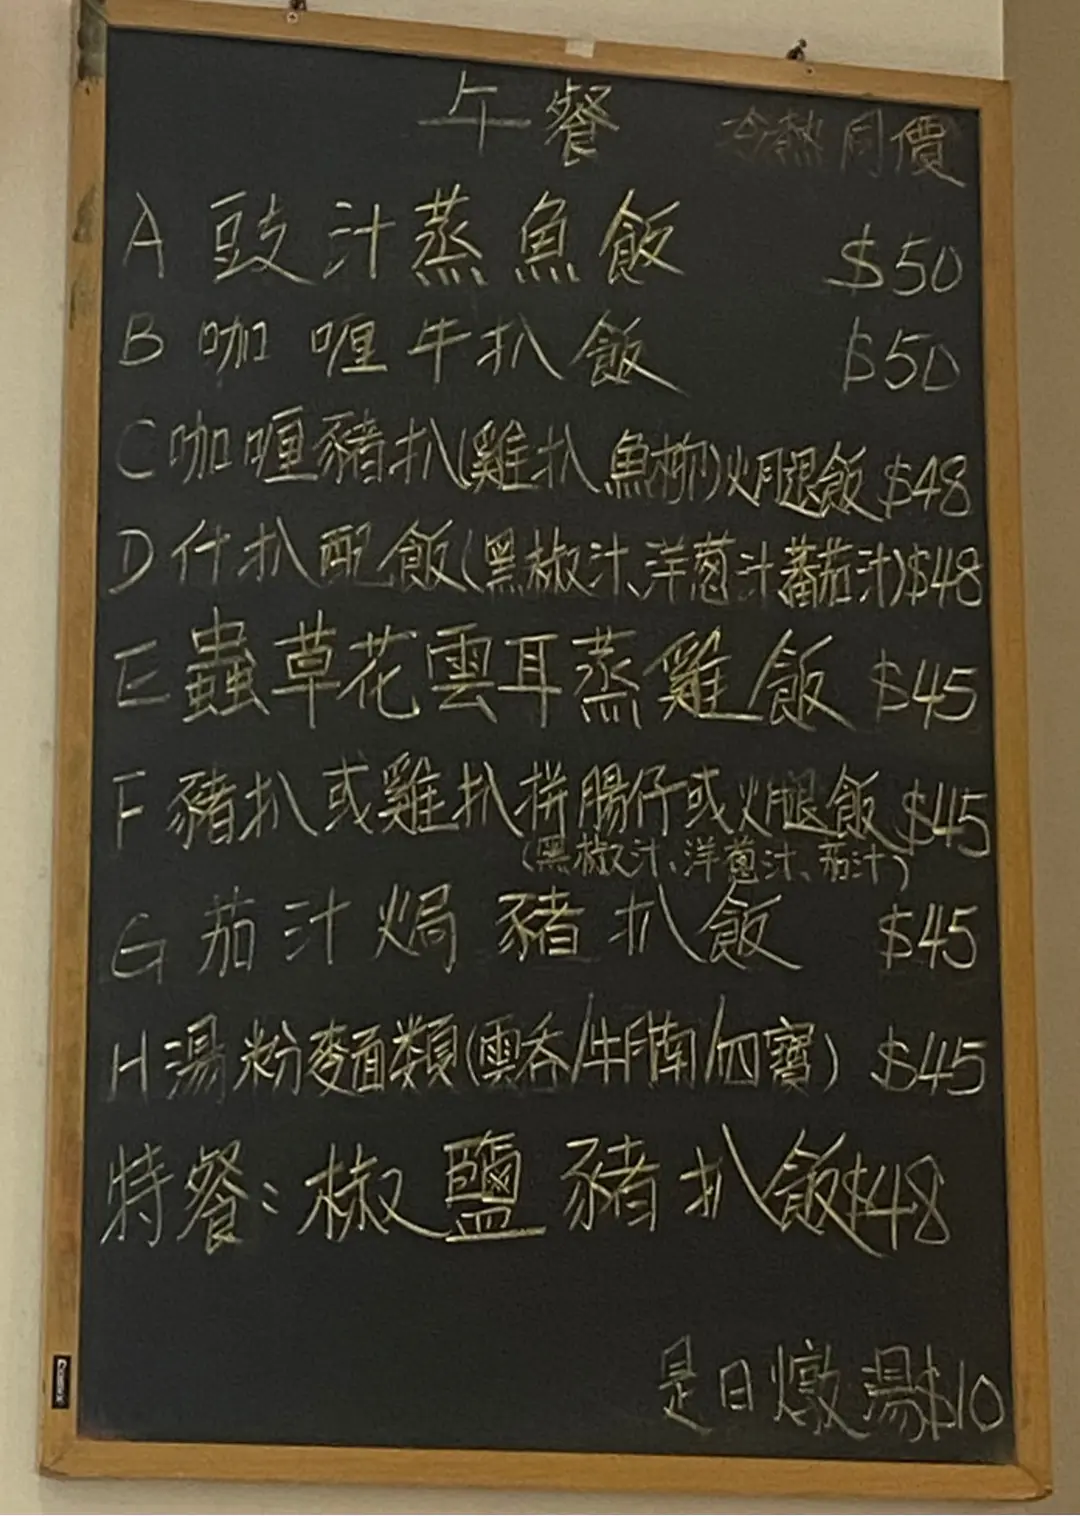 午餐 冷熱同價
A 豉汁蒸魚飯 $50
B 咖喱牛扒飯 $50
C 咖喱豬扒(雞扒魚柳)火腿飯 $48
D 什扒配飯(黑椒汁、洋葱汁蕃茄汁) $48
E 蟲草花雲耳蒸雞飯 $45
F 豬扒或雞扒拼腸仔或火腿飯 $45
(黑椒汁、洋葱汁、茄汁)
G 茄汁焗豬扒飯 $45
H 湯粉麵類(雲吞/牛腩/四寶) $45
特餐:椒鹽豬扒飯$48
是日燉湯$10